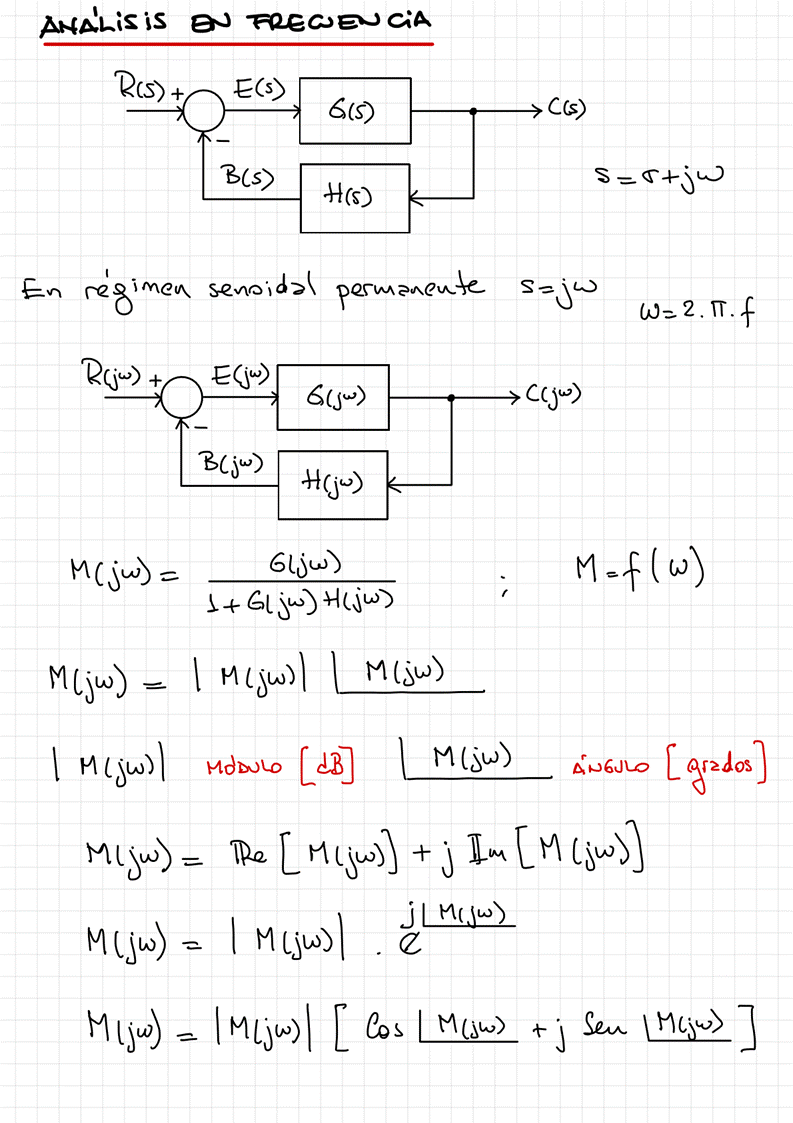 ANÁLISIS EN FRECUENCIA
R(s) + E(s) G(s) C(s)
−
B(s) H(s) s=σ+jω
En régimen senoidal permanente s=jω
ω=2.π.f
R(jω) + E(jω) G(jω) C(jω)
−
B(jω) H(jω)
M(jω) = G(jω) / 1+G(jω)H(jω) ; M=f(ω)
M(jω) = |M(jω)| ∠M(jω)
|M(jω)| MÓDULO [dB] ∠M(jω) ÁNGULO [grados]
M(jω) = Re[M(jω)] + j Im[M(jω)]
M(jω) = |M(jω)| . e^(j∠M(jω))
M(jω) = |M(jω)| [Cos ∠M(jω) + j Sen ∠M(jω)]